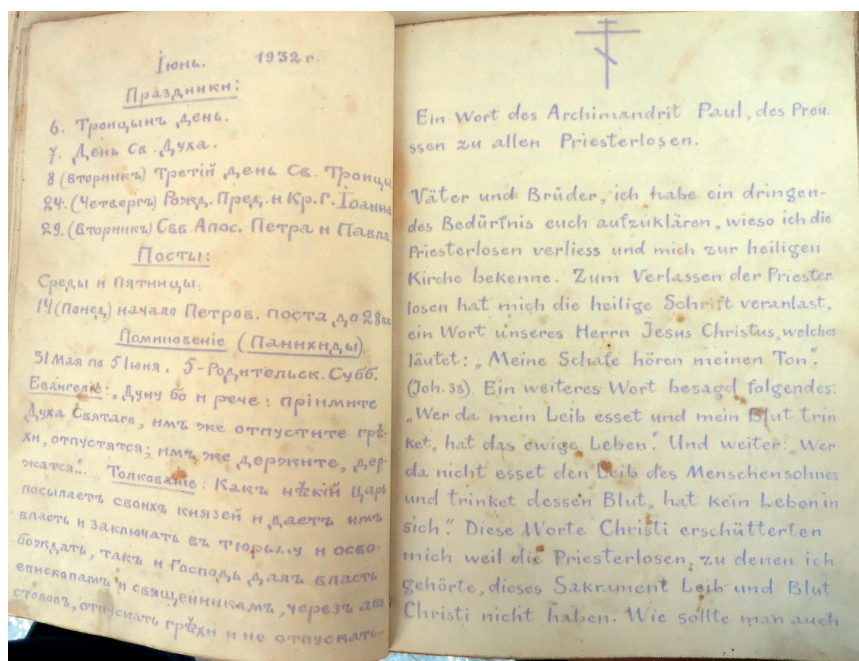 Iюнь. 1932 г.
Праздники:
6. Троицынъ день.
7. День Св. Духа.
8 (вторникъ) Третiй день Св. Троицы
24. (Четвергъ) Рожд. Пред. и Кр. Г. Iоанна
29. (Вторникъ) Свв. Апос. Петра и Павла
Посты:
Среды и пятницы.
14 (Понед) начало Петров. поста до 28 вкл
Поминовенiе (Паннихиды)
31 мая по 5 Iюня. 5-Родительск. Субб.
Евангелiе: „Дуну бо и рече: прiимите
Духа Святаго, имъ же отпустите грѣ-
хи, отпустятся; имъ же держите, дер-
жатся“. Толкованiе: Какъ нѣкiй Царь
посылаетъ своихъ князей и даетъ имъ
власть и заключать въ тюрьму и осво-
бождать, такъ и Господь далъ власть
епископамъ и священникамъ, черезъ апо
столовъ, отпускать грѣхи и не отпускать.
Ein Wort des Archimandrit Paul, des Preu-
ssen zu allen Priesterlosen.
Väter und Brüder, ich habe ein dringen-
des Bedürfnis euch aufzuklären, wieso ich die
Priesterlosen verliess und mich zur heiligen
Kirche bekenne. Zum Verlassen der Priester
losen hat mich die heilige Schrift veranlast,
ein Wort unseres Herrn Jesus Christus, welches
läutet: „Meine Schafe hören meinen Ton“.
(Joh. 38). Ein weiteres Wort besagd folgendes:
„Wer da mein Leib esset und mein Blut trin
ket, hat das ewige Leben“. Und weiter: „Wer
da nicht esset den Leib des Menschensohnes
und trinket dessen Blut, hat kein Leben in
sich“. Diese Worte Christi erschütterten
mich weil die Priesterlosen, zu denen ich
gehörte, dieses Sakrament Leib und Blut
Christi nicht haben. Wie sollte man auch